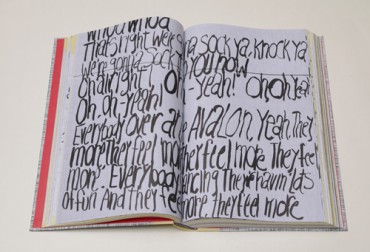 whoa whoa
That's right we're
we're gonna sock
Oh alright
Oh, oh-Yeah!
Everybody over at
more, They feel mo
more. Everybody
of fun. And they fee
na sock ya, knock ya
you now
-Yeah! Oh, oh Yea
he AVALON, Yeah, They
They feel more They feel
dancing They havin' lots
more they feel more